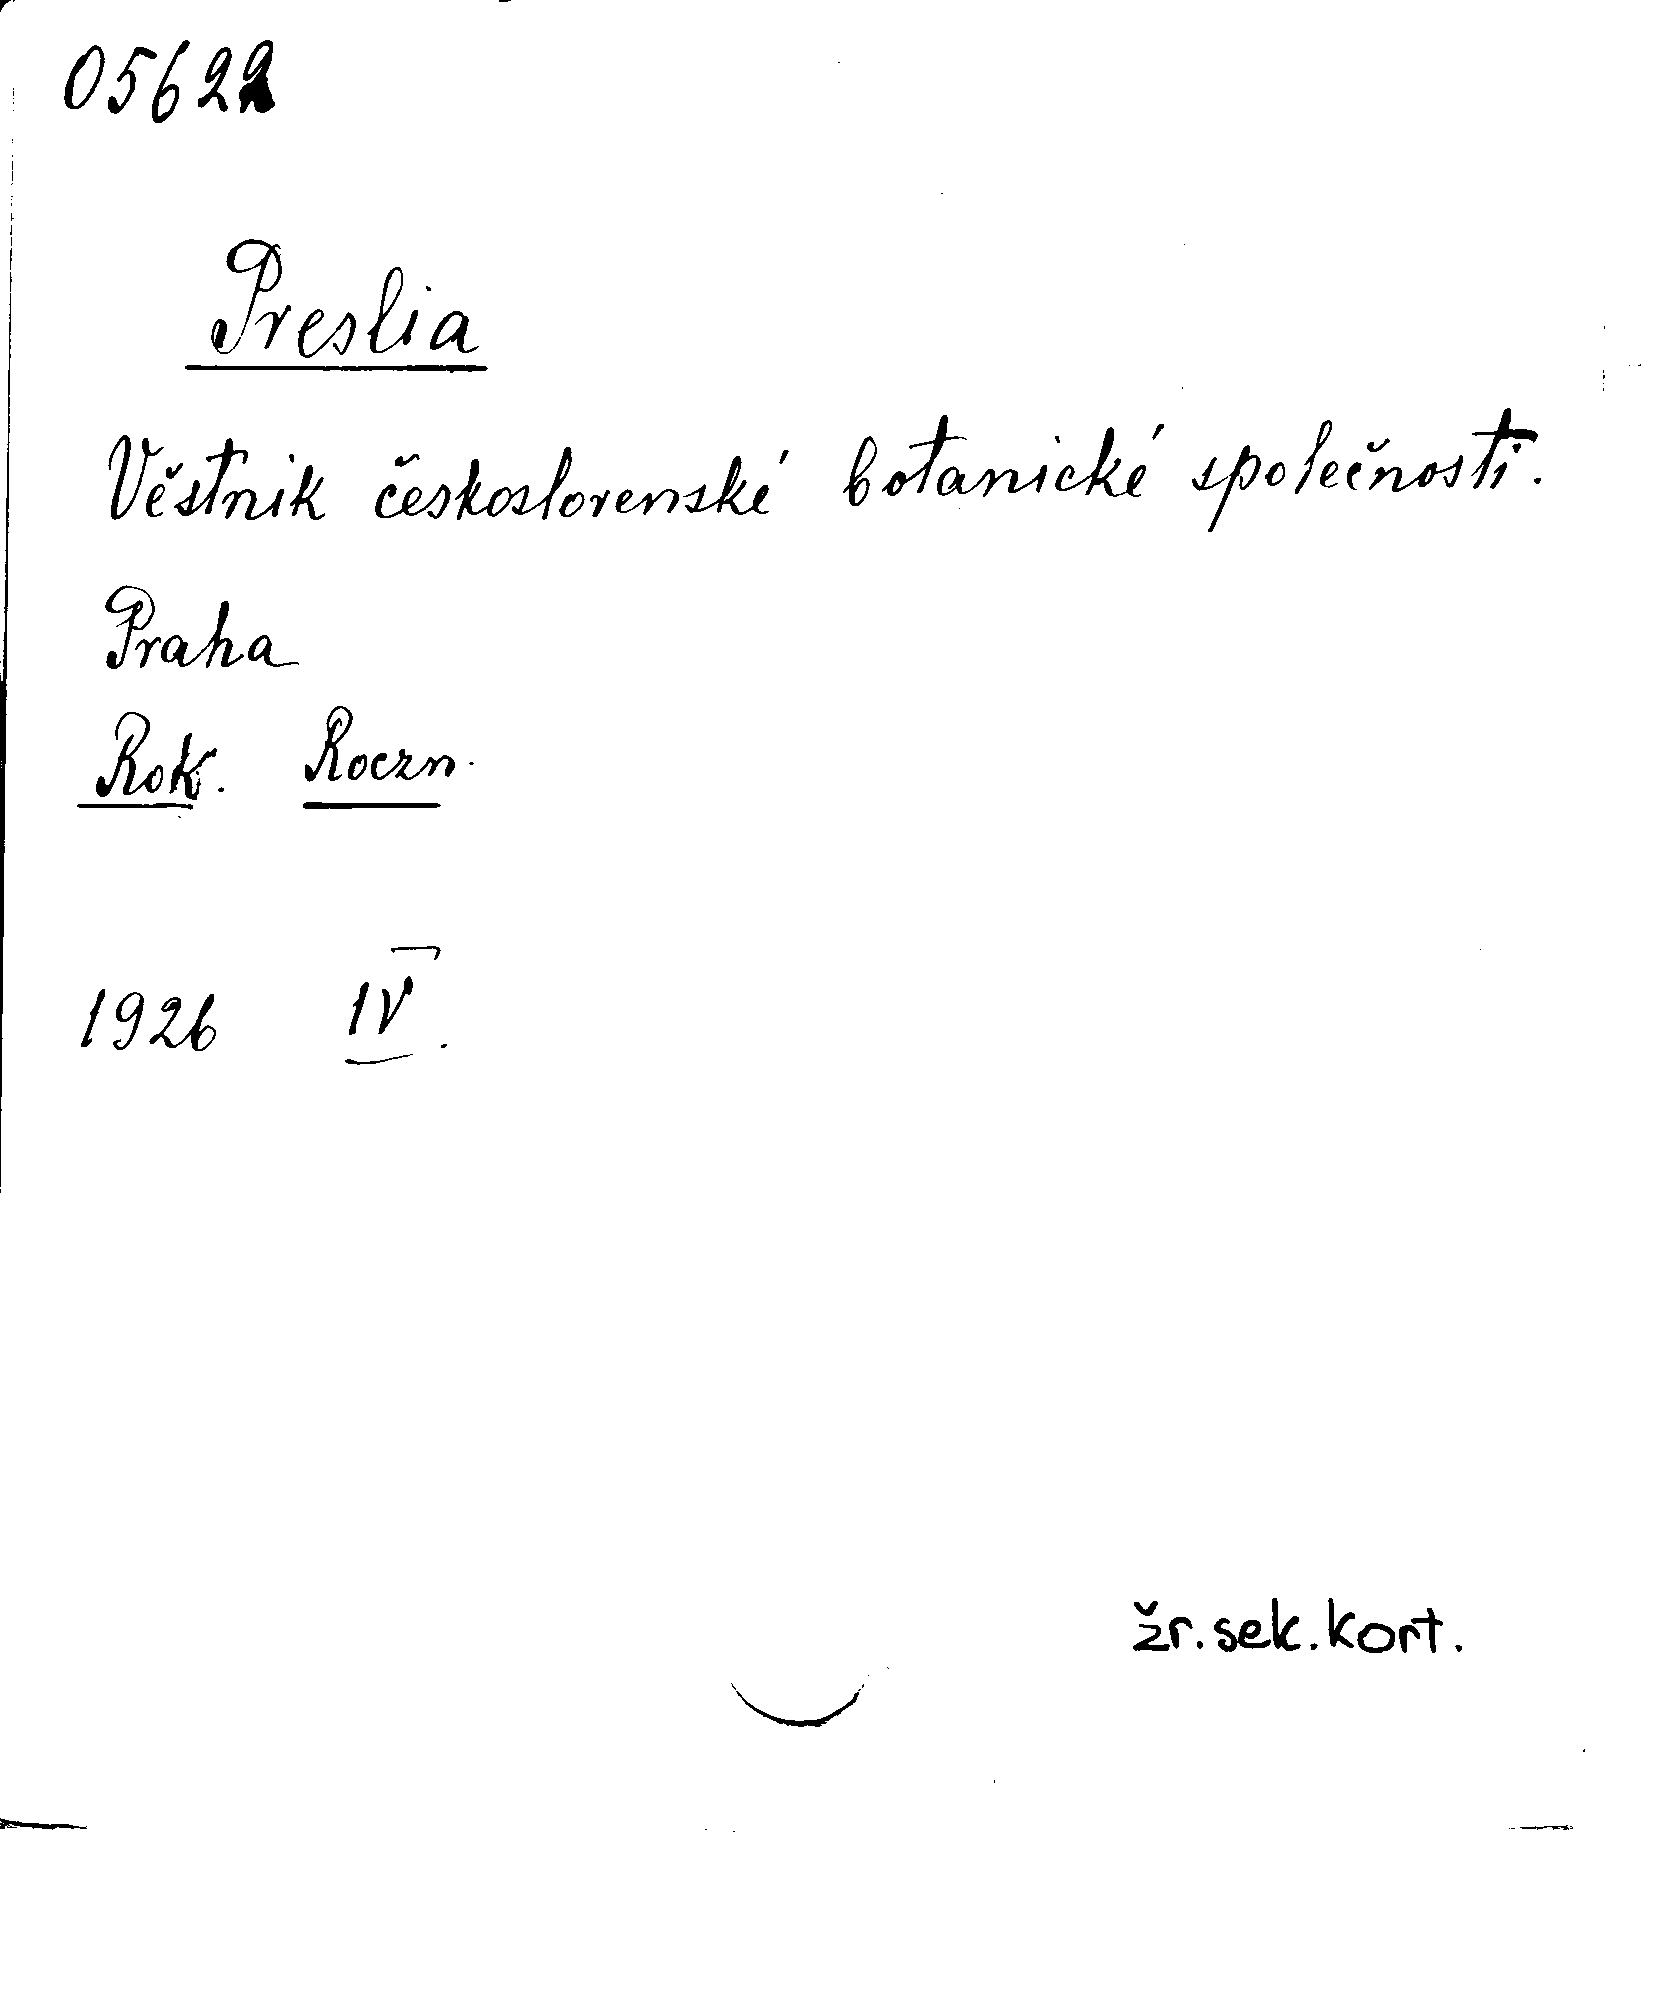 05622
Preslia
Věstnik československé botanické společnosti.
Praha
Rok. Roczn.
1926 IV.
žr. sek. kort.